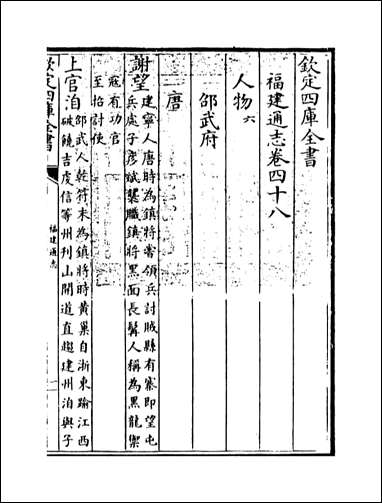 欽定四庫全書
福建通志卷四十八
人物六
邵武府
唐
謝望建寧人唐時為鎮將嘗領兵討賊縣有寨即望屯
兵處子彦斌襲職鎮將黑面長髯人稱為黑龍禦
寇有功官
至招討使
上官洎邵武人乾符末為鎮將時黄巢自浙東踰江西
破饒吉虔信等州刋山開道直趨建州洎與子
欽定四庫全書
福建通志
一